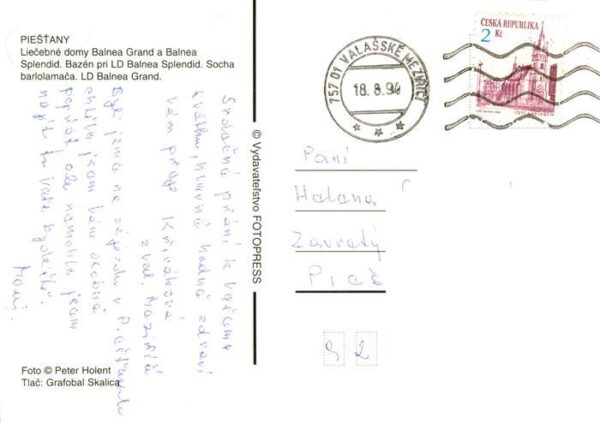 PIEŠŤANY
Liečebné domy Balnea Grand a Balnea
Splendid. Bazén pri LD Balnea Splendid. Socha
barlolamača. LD Balnea Grand.
Srdečné přání k Vašemu
svátku, hlavně hodně zdraví
Vám přeje
z Val. Meziříčí
Byli jsme na zájezdu v Piešťanech
chtěla jsem Vám osobně
popřát ale nemohla jsem
najít to Vaše bydliště.
Foto © Peter Holent
Tlač: Grafobal Skalica
© Vydavateľstvo FOTOPRESS
757 01 VALAŠSKÉ MEZIŘÍČÍ
18. 8. 94
ČESKÁ REPUBLIKA
2 Kč
Paní
Helena
Závratý
92